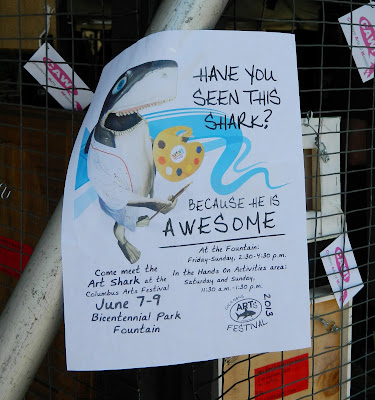 HAVE YOU
SEEN THIS
SHARK?
BECAUSE HE IS
AWESOME
At the Fountain:
Friday-Sunday, 2:30-4:30 p.m.
In the Hands On Activities area:
Saturday and Sunday,
11:30 a.m.-1:30 p.m.
Come meet the
Art Shark at the
Columbus Arts Festival
June 7-9
Bicentennial Park
Fountain
COLUMBUS
ARTS
FESTIVAL
2013